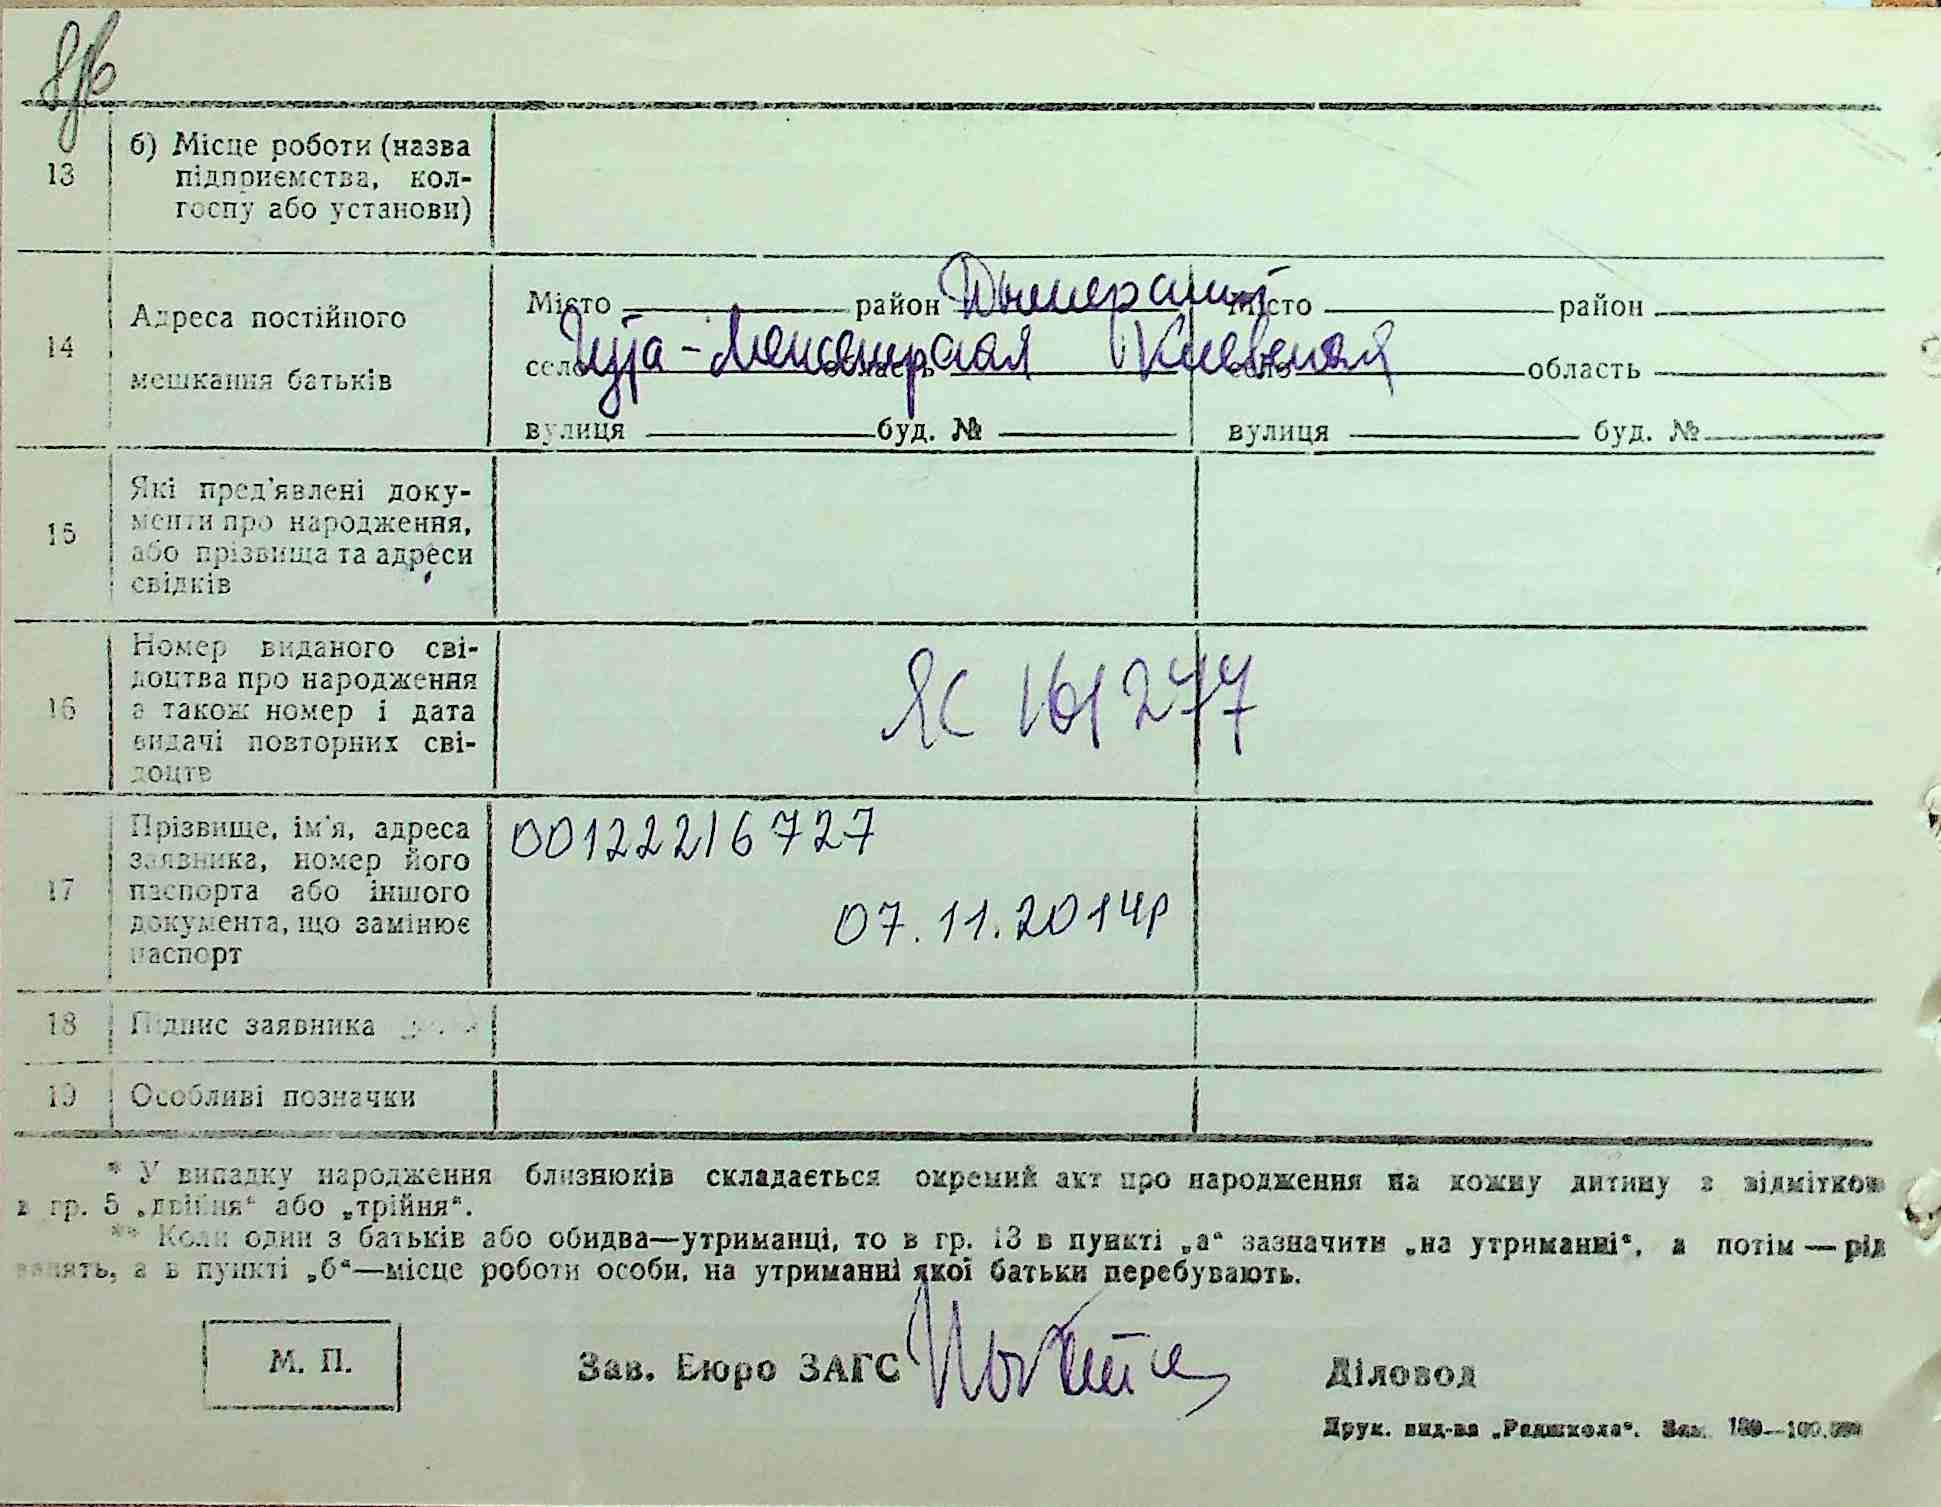 13
б) Місце роботи (назва
підприємства, кол-
госпу або установи)
14
Адреса постійного
мешкання батьків
Місто район Дымерский Місто район
село Луја-Межигорская область Киевская село область
вулиця буд. № вулиця буд. №
15
Які пред'явлені доку-
менти про народження,
або прізвища та адреси
свідків
16
Номер виданого сві-
доцтва про народження
а також номер і дата
видачі повторних сві-
доцтв
ЯС 161277
17
Прізвище, ім'я, адреса
заявника, номер його
паспорта або іншого
документа, що замінює
паспорт
00122216727
07.11.2014р
18 Підпис заявника
19 Особливі позначки
* У випадку народження близнюків складається окремий акт про народження на кожну дитину з відміткою
в гр. 5 „двійня“ або „трійня“.
** Коли один з батьків або обидва—утриманці, то в гр. 13 в пункті „а“ зазначити „на утриманні“, а потім — рід
занять, а в пункті „б“—місце роботи особи, на утриманні якої батьки перебувають.
М. П.
Зав. Бюро ЗАГС
Діловод
Друк. вид-ва „Радшкола“. Зам.